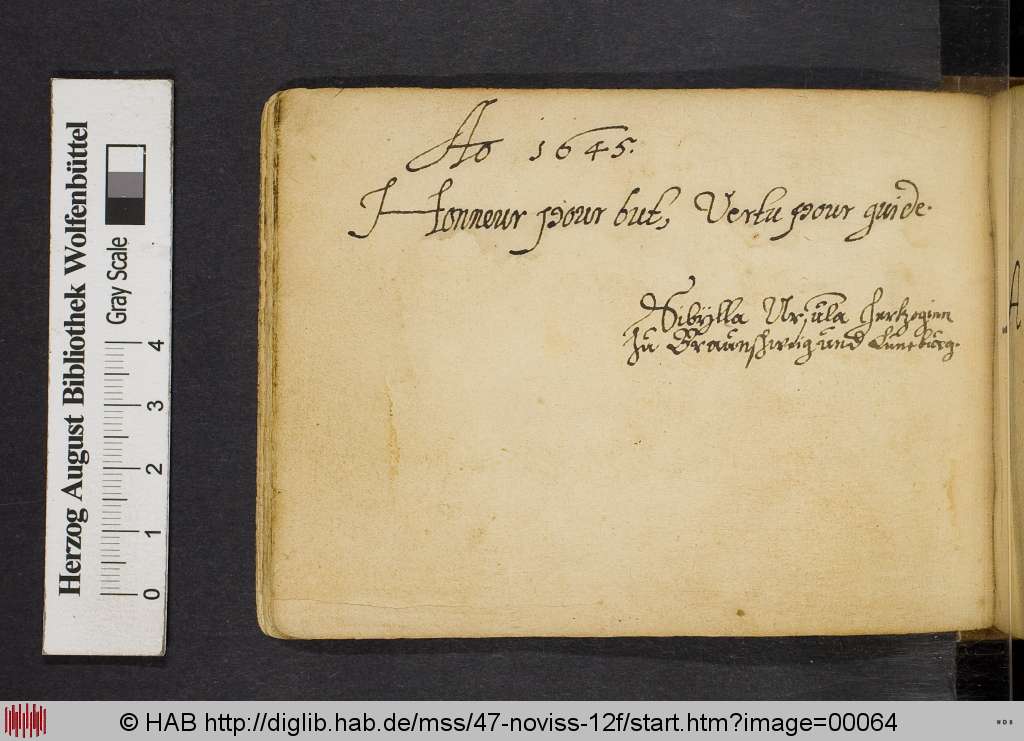 Ao 1645.
Honneur pour but, Vertu pour guide.
Sibÿlla Ursula Hertzoginn
zu Braunschweig und Lüneburg.
Herzog August Bibliothek Wolfenbüttel
Gray Scale
0 1 2 3 4
© HAB http://diglib.hab.de/mss/47-noviss-12f/start.htm?image=00064